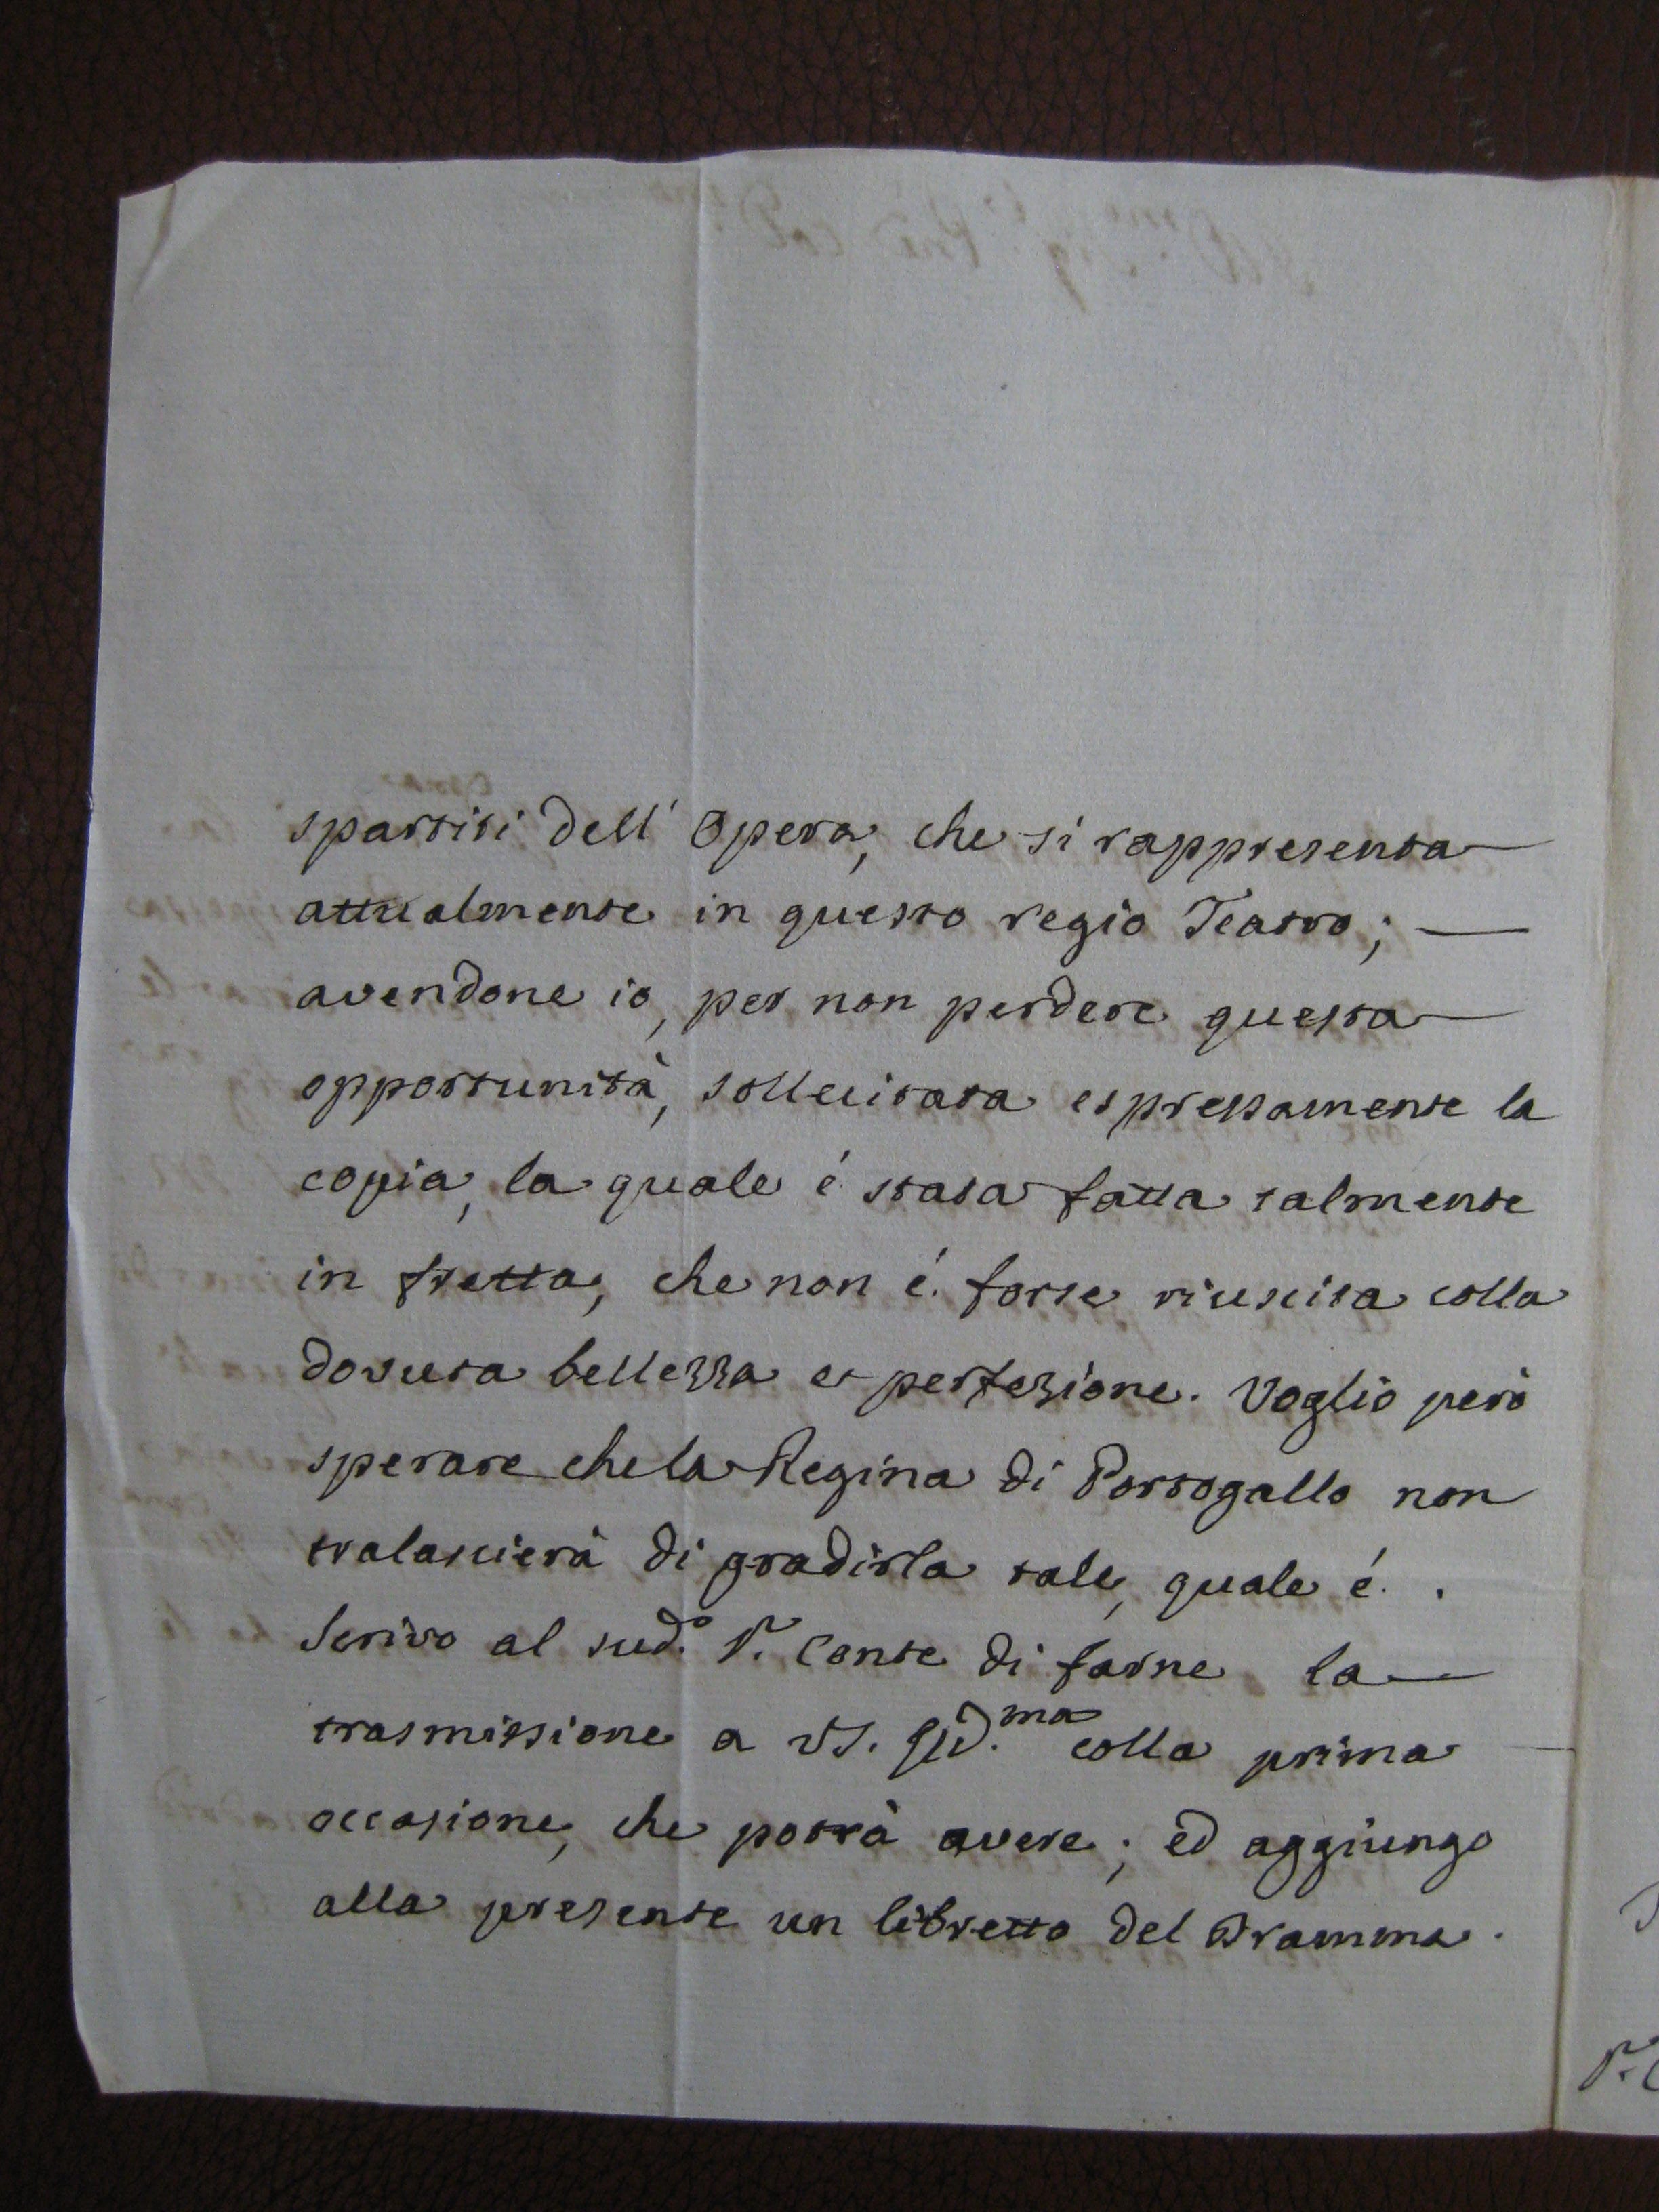 spartiti dell' Opera, che si rappresenta
attualmente in questo regio Teatro; —
avendone io, per non perdere questa
opportunità, sollecitata espressamente la
copia, la quale é stata fatta talmente
in fretta, che non é forse riuscita colla
dovuta bellezza e perfezione. Voglio però
sperare che la Regina di Portogallo non
tralascierà di gradirla tale, quale é.
Scrivo al sud.o S. Conte di farne la
trasmissione a VS. Ill.ma colla prima
occasione, che potrà avere; ed aggiungo
alla presente un libretto del Dramma.